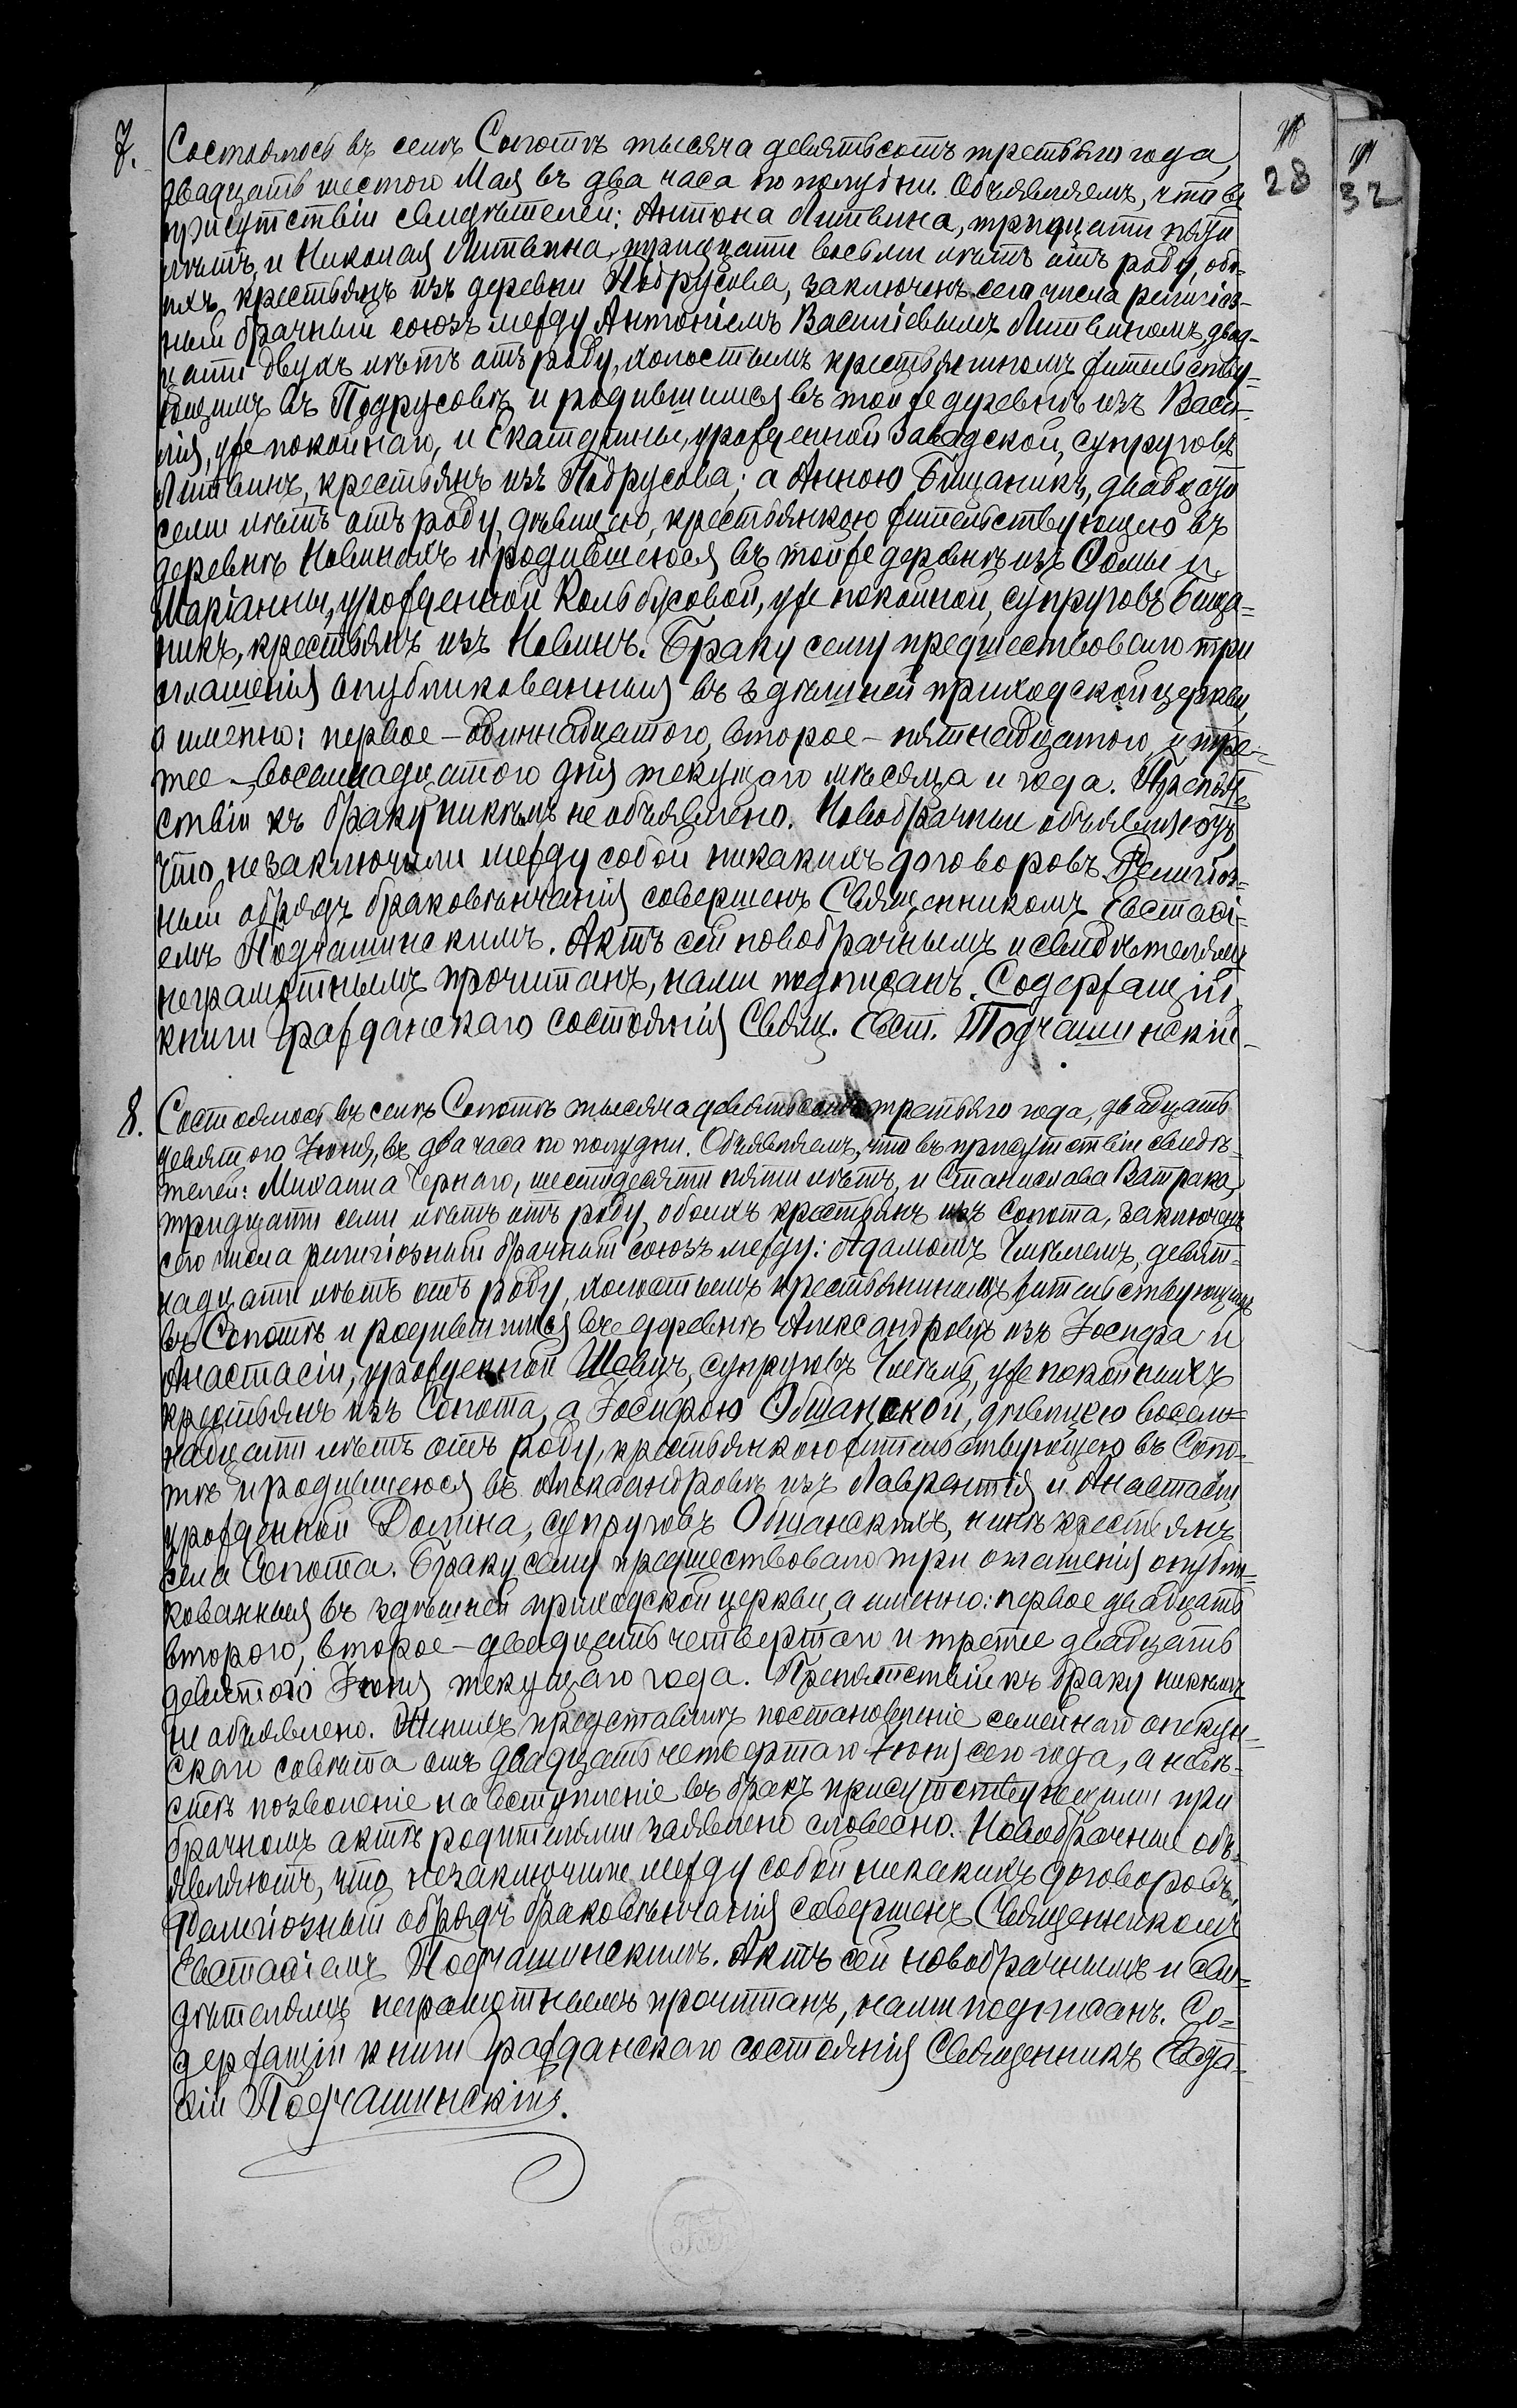 28
32
7.
Состоялось въ селѣ Сопотѣ тысяча девятьсотъ третьяго года,
двадцать шестого Мая въ два часа по полудни. Объявляемъ, что въ
присутствіи свидѣтелей: Антона Литвина, тридцати пяти
лѣтъ, и Николая Литвина, тридцати восьми лѣтъ отъ роду, обо-
ихъ крестьянъ изъ деревни Подрусова, заключенъ сего числа религіоз-
ный брачный союзъ между Антоніемъ Василіевымъ Литвиномъ, двад-
цати двухъ лѣтъ отъ роду, холостымъ крестьяниномъ жительству-
ющимъ въ Подрусовѣ и родившимся въ той же деревнѣ изъ Васи-
лія, уже покойнаго, и Екатерины, урожденной Завадской, супруговъ
Литвинъ, крестьянъ изъ Подрусова; а Анною Бищаникъ, двадцати
семи лѣтъ отъ роду, дѣвицею, крестьянкою жительствующею въ
деревнѣ Новинахъ и родившеюся въ той же деревнѣ изъ Ѳомы и
Маріанны, урожденной Кольбусовой, уже покойной, супруговъ Бища-
никъ, крестьянъ изъ Новинъ. Браку сему предшествовало три
оглашенія опубликованныя въ здѣшней приходской церкви,
а именно: первое – одиннадцатого, второе – пятнадцатого, и тре-
тее – восемнадцатого дня текущаго мѣсяца и года. Препят-
ствіи къ браку никѣмъ не объявлено. Новобрачные объявляютъ,
что незаключили между собой никакихъ договоровъ. Религіоз-
ный обрядъ браковѣнчанія совершенъ Священникомъ Евстаѳі-
емъ Подчашинскимъ. Актъ сей новобрачнымъ и свидѣтелямъ
неграмотнымъ прочитанъ, нами подписанъ. Содержащій
книги Гражданскаго состоянія Свящ. Евст. Подчашинскій
8.
Состоялось въ селѣ Сопотѣ тысяча девятьсотъ третьяго года, двадцать
девятого Іюня, въ два часа по полудни. Объявляемъ, что въ присутствіи свидѣ-
телей: Михаила Чернаго, шестидесяти пяти лѣтъ, и Станислава Ватрака,
тридцати семи лѣтъ отъ роду, обоихъ крестьянъ изъ Сопота, заключенъ
сего числа религіозный брачный союзъ между: Адамомъ девят-
надцати лѣтъ отъ роду, холостымъ крестьяниномъ жительствующимъ
въ Сопотѣ и родившимся въ деревнѣ Александровѣ изъ Іосифа и
Анастасіи, урожденной Шевцъ, супруговъ уже покойныхъ
крестьянъ изъ Сопота, а Іосифою Общанской, дѣвицею восем-
надцати лѣтъ отъ роду, крестьянкою жительствующею въ Сопо-
тѣ и родившеюся въ Александровѣ изъ Лаврентія и Анастасіи
урожденной Долина, супруговъ Общанскихъ, нынѣ крестьянъ
села Сопота. Браку сему предшествовало три оглашенія опубли-
кованныя въ здѣшней приходской церкви, а именно: первое двадцать
второго, второе – двадцать четвертаго и третее двадцать
девятого Іюня текущаго года. Препятствій къ браку никѣмъ
не объявлено. Женихъ представилъ постановленіе семейнаго опекун-
скаго совѣта отъ двадцать четвертаго Іюня сего года, а невѣ-
стѣ позволеніе на вступленіе въ бракъ присутствующими при
брачномъ актѣ родителями заявлено словесно. Новобрачные объ-
являютъ, что незаключили между собой никакихъ договоровъ.
Религіозный обрядъ браковѣнчанія совершенъ Священникомъ
Евстаѳіемъ Подчашинскимъ. Актъ сей новобрачнымъ и сви-
дѣтелямъ неграмотнымъ прочитанъ, нами подписанъ. Со-
держащій книги Гражданскаго состоянія Священникъ Евста-
ѳій Подчашинскій.